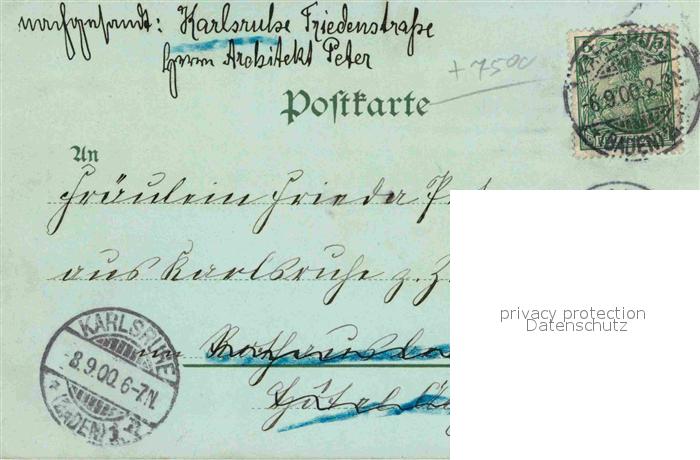 nachgesandt: Karlsruhe Friedenstraße
Herrn Architekt Peter
+7500
Postkarte
KARLSRUHE
6.9.00.2-3
(BADEN)
An
Fräulein Frieda
aus Karlsruhe z. Z.
privacy protection
Datenschutz
KARLSRUHE
8.9.00.6-7N.
(BADEN)
im
Hôtel